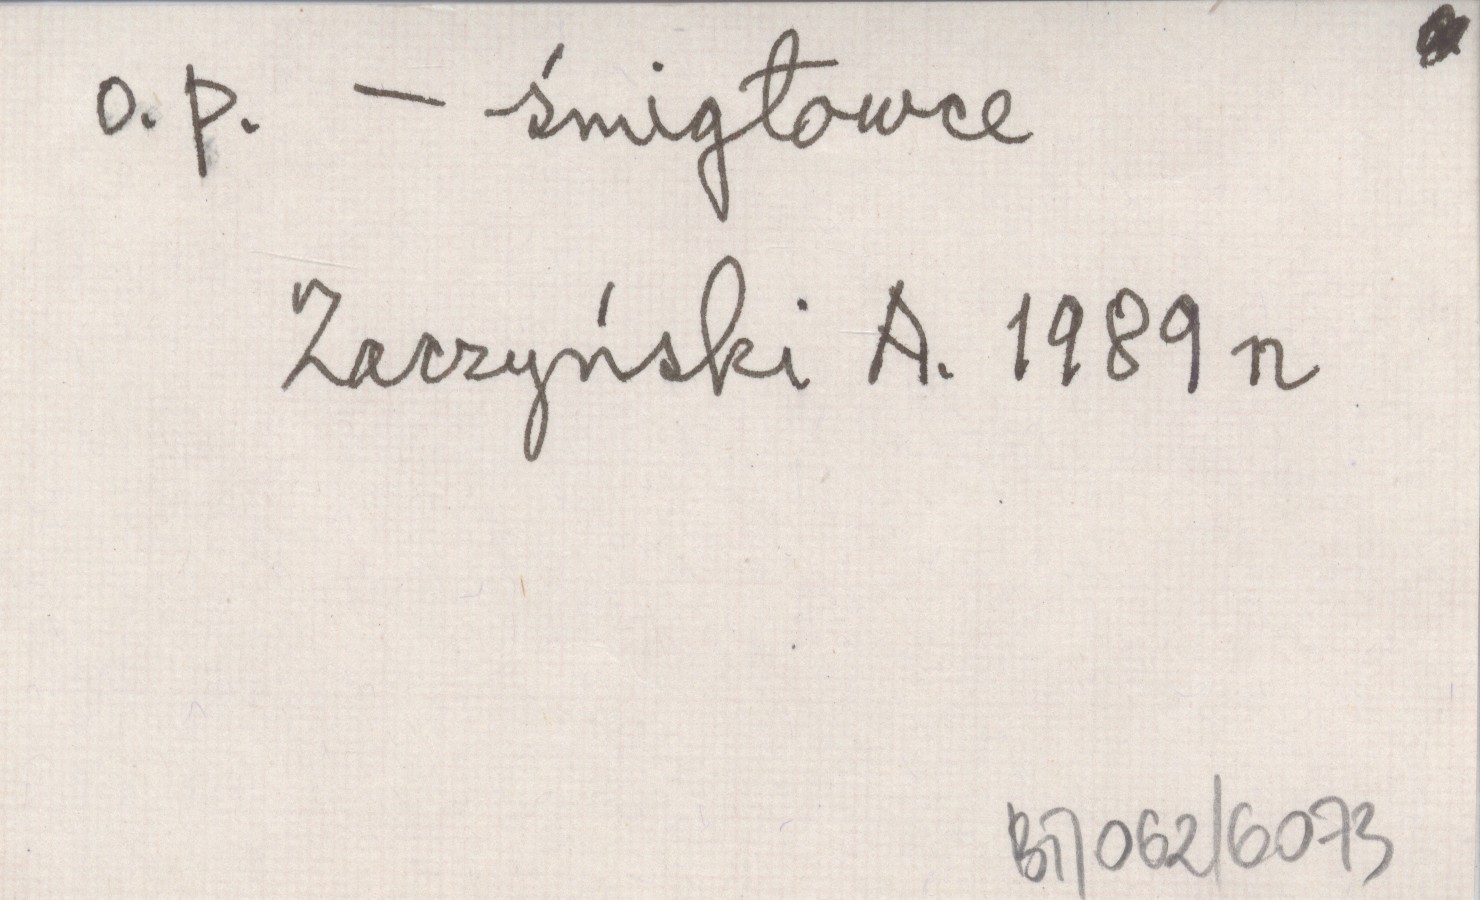 o. p. — śmigłowce
Zaczyński A. 1989 n
BT/062/6073